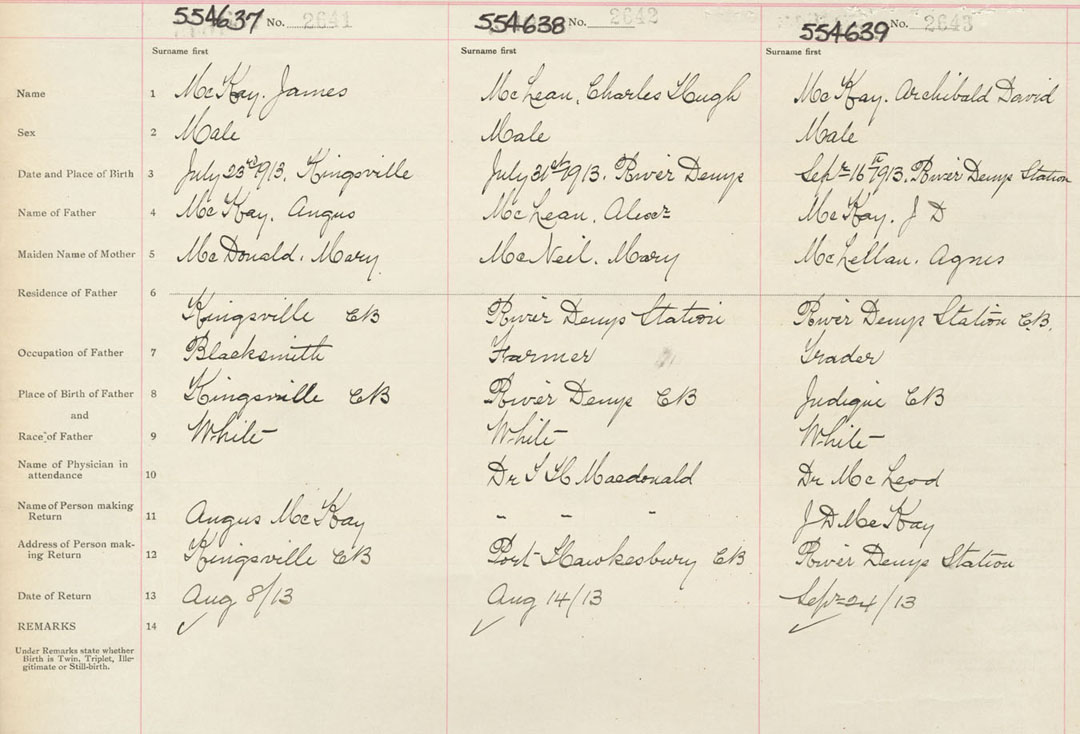 554637 No. 2641 554638 No. 2642 554639 No. 2643
Surname first Surname first Surname first
Name 1 McKay, James McLean, Charles Hugh McKay, Archibald David
Sex 2 Male Male Male
Date and Place of Birth 3 July 23rd 1913, Kingsville July 31st 1913, River Denys Sepr 16th 1913, River Denys Station
Name of Father 4 McKay, Angus McLean, Alexr McKay, J D
Maiden Name of Mother 5 McDonald, Mary McNeil, Mary McLellan, Agnes
Residence of Father 6
Kingsville CB River Denys Station River Denys Station C.B.
Occupation of Father 7 Blacksmith Farmer Trader
Place of Birth of Father 8 Kingsville CB River Denys CB Judique CB
and
Race of Father 9 White White White
Name of Physician in
attendance 10 Dr Macdonald Dr McLeod
Name of Person making
Return 11 Angus McKay " " " J D McKay
Address of Person mak-
ing Return 12 Kingsville CB Port Hawkesbury CB River Denys Station
Date of Return 13 Aug 8/13 Aug 14/13 Sepr 24/13
REMARKS 14
Under Remarks state whether
Birth is Twin, Triplet, Ille-
gitimate or Still-birth.